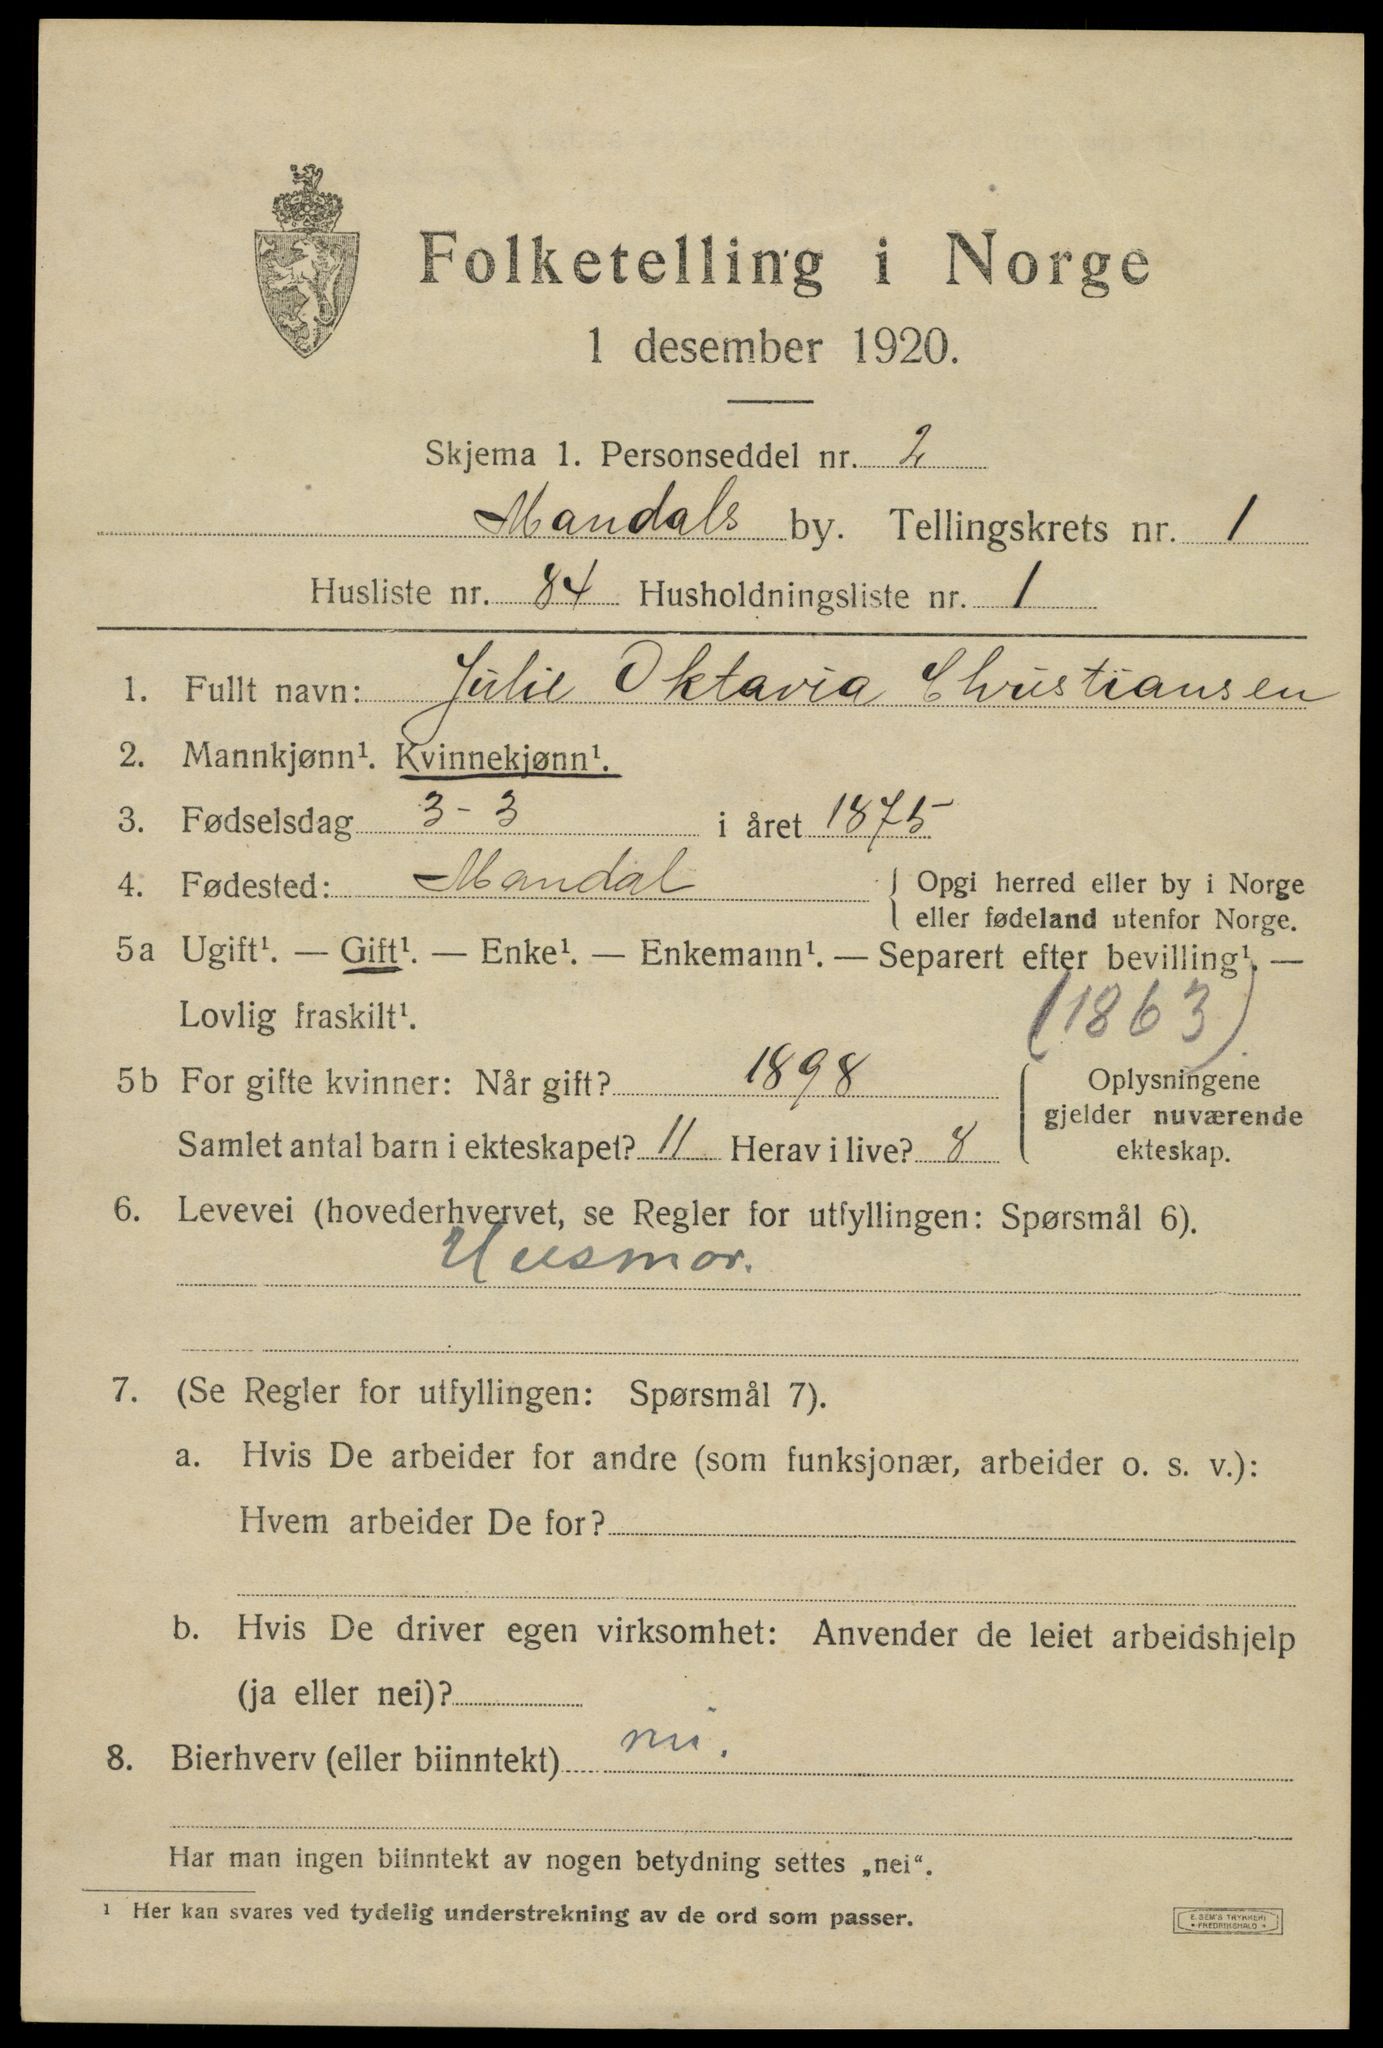 Folketelling i Norge
1 desember 1920.
Skjema 1. Personseddel nr. 2
Mandals by. Tellingskrets nr. 1
Husliste nr. 84 Husholdningsliste nr. 1
1. Fullt navn: Julie Oktavia Christiansen
2. Mannkjønn¹. Kvinnekjønn¹.
3. Fødselsdag 3-3 i året 1875
4. Fødested: Mandal { Opgi herred eller by i Norge
eller fødeland utenfor Norge.
5a Ugift¹. — Gift¹. — Enke¹. — Enkemann¹. — Separert efter bevilling¹. —
Lovlig fraskilt¹. (1863)
5b For gifte kvinner: Når gift? 1898
Samlet antal barn i ekteskapet? 11 Herav i live? 8
Oplysningene
gjelder nuværende
ekteskap.
6. Levevei (hovederhvervet, se Regler for utfyllingen: Spørsmål 6).
Husmor.
7. (Se Regler for utfyllingen: Spørsmål 7).
a. Hvis De arbeider for andre (som funksjonær, arbeider o. s. v.):
Hvem arbeider De for?
b. Hvis De driver egen virksomhet: Anvender de leiet arbeidshjelp
(ja eller nei)?
8. Bierhverv (eller biinntekt) nei.
Har man ingen biinntekt av nogen betydning settes „nei“.
¹ Her kan svares ved tydelig understrekning av de ord som passer.
E. SEM'S TRYKKERI
• FREDRIKSHALD •